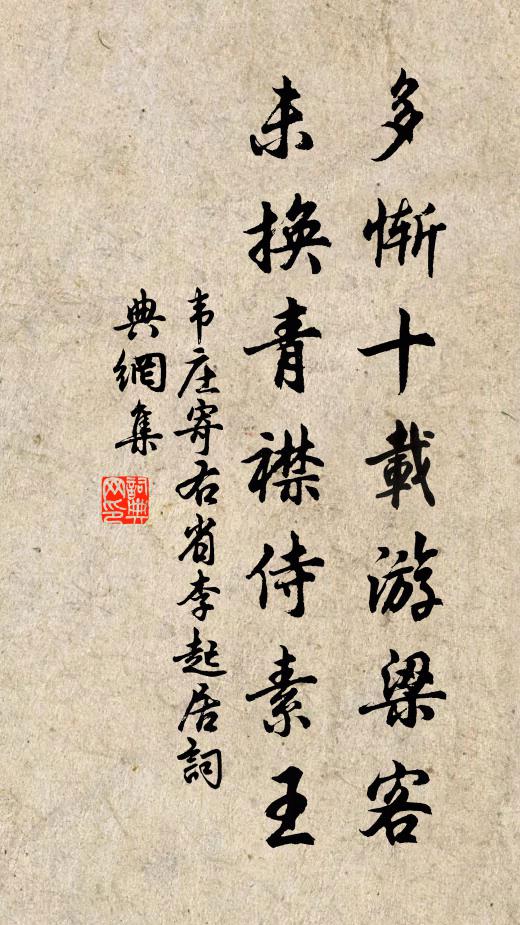 多惭十載游梁客
未換青襟侍素王
韦庄寄右省李起居詞
典網集
詞典网印